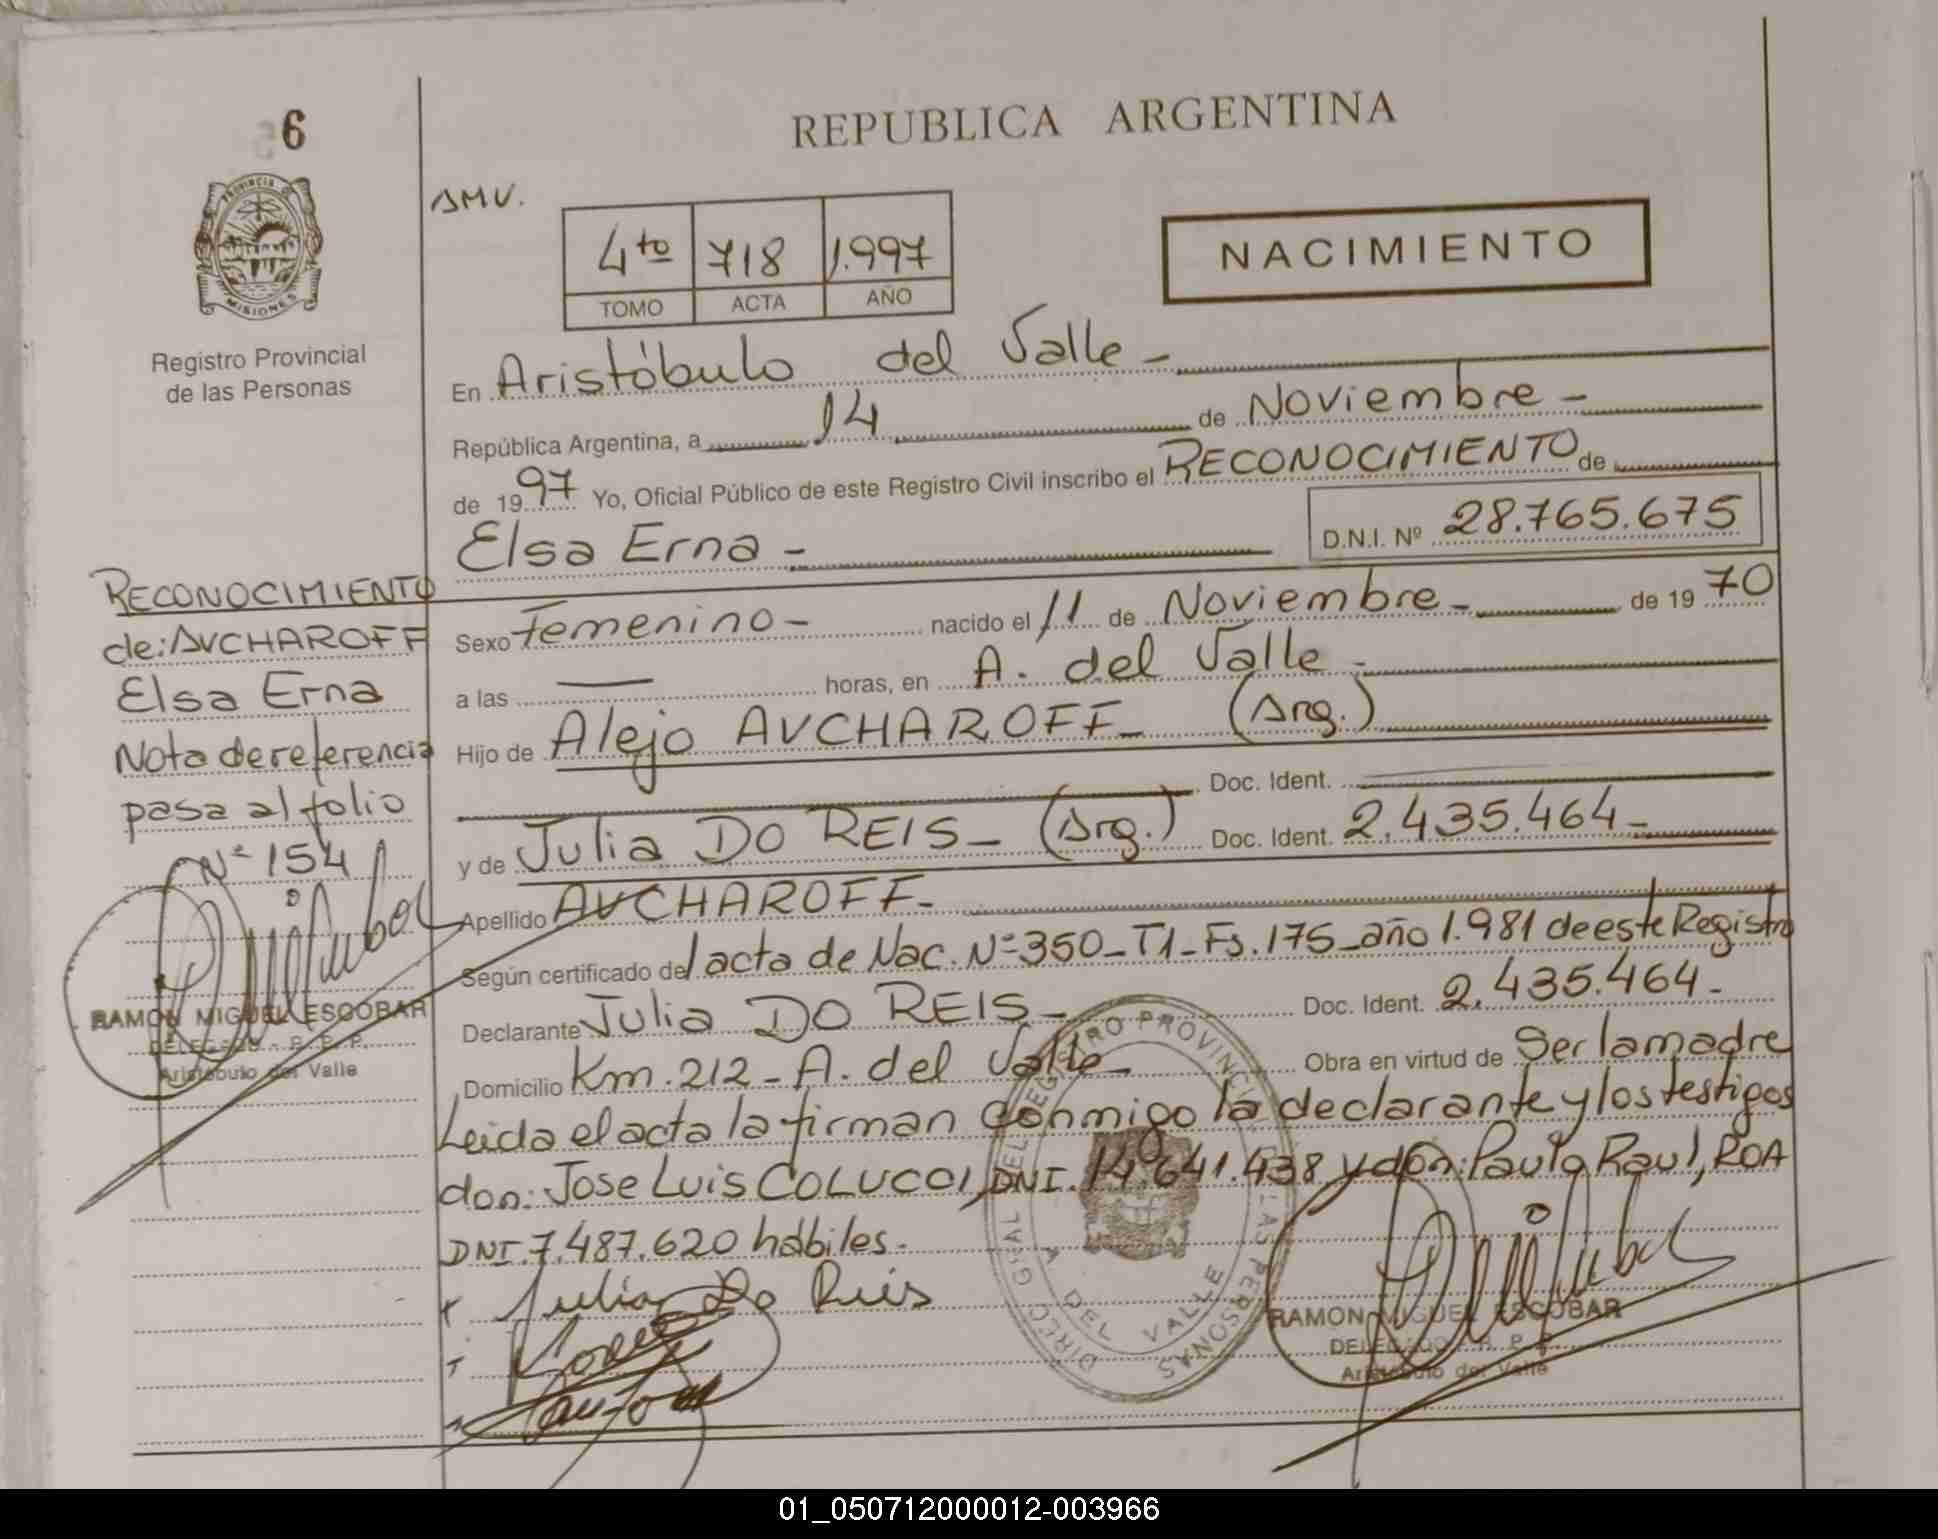 6
REPUBLICA ARGENTINA
PROVINCIA DE
MISIONES
Registro Provincial
de las Personas
AMV.
4to 718 1.997
TOMO ACTA AÑO
NACIMIENTO
En Aristóbulo del Valle -
República Argentina, a 14 de Noviembre -
de 1997 Yo, Oficial Público de este Registro Civil inscribo el RECONOCIMIENTO de
Elsa Erna - D.N.I. Nº 28.765.675
Sexo Femenino - nacido el 11 de Noviembre - de 1970
a las — horas, en A. del Valle -
Hijo de Alejo AVCHAROFF - (Arg.)
Doc. Ident.
y de Julia DO REIS - (Arg.) Doc. Ident. 2.435.464 -
Apellido AVCHAROFF -
Según certificado del acta de Nac. Nº 350 - T1 - Fs. 175 - año 1.981 de este Registro
Declarante Julia DO REIS - Doc. Ident. 2.435.464 -
Domicilio Km. 212 - A. del Valle - Obra en virtud de Ser la madre
Leida el acta la firman conmigo la declarante y los testigos
don: Jose Luis COLUCCI, DNI. 14.641.438 y don: Paulo Raul, ROA
DNI. 7.487.620 hábiles. -
Julia Do Reis
RECONOCIMIENTO
de: AVCHAROFF
Elsa Erna
Nota de referencia
pasa al folio
Nº 154
RAMON MIGUEL ESCOBAR
DELEGADO - R. P. P.
Aristóbulo del Valle
DIREC. GRAL DEL REGISTRO PROVINCIAL DE LAS PERSONAS
A. DEL VALLE
RAMON MIGUEL ESCOBAR
DELEGADO R. P. P.
Aristóbulo del Valle
01_050712000012-003966